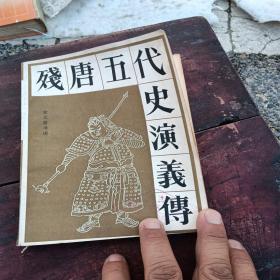 殘唐五代史演義傳